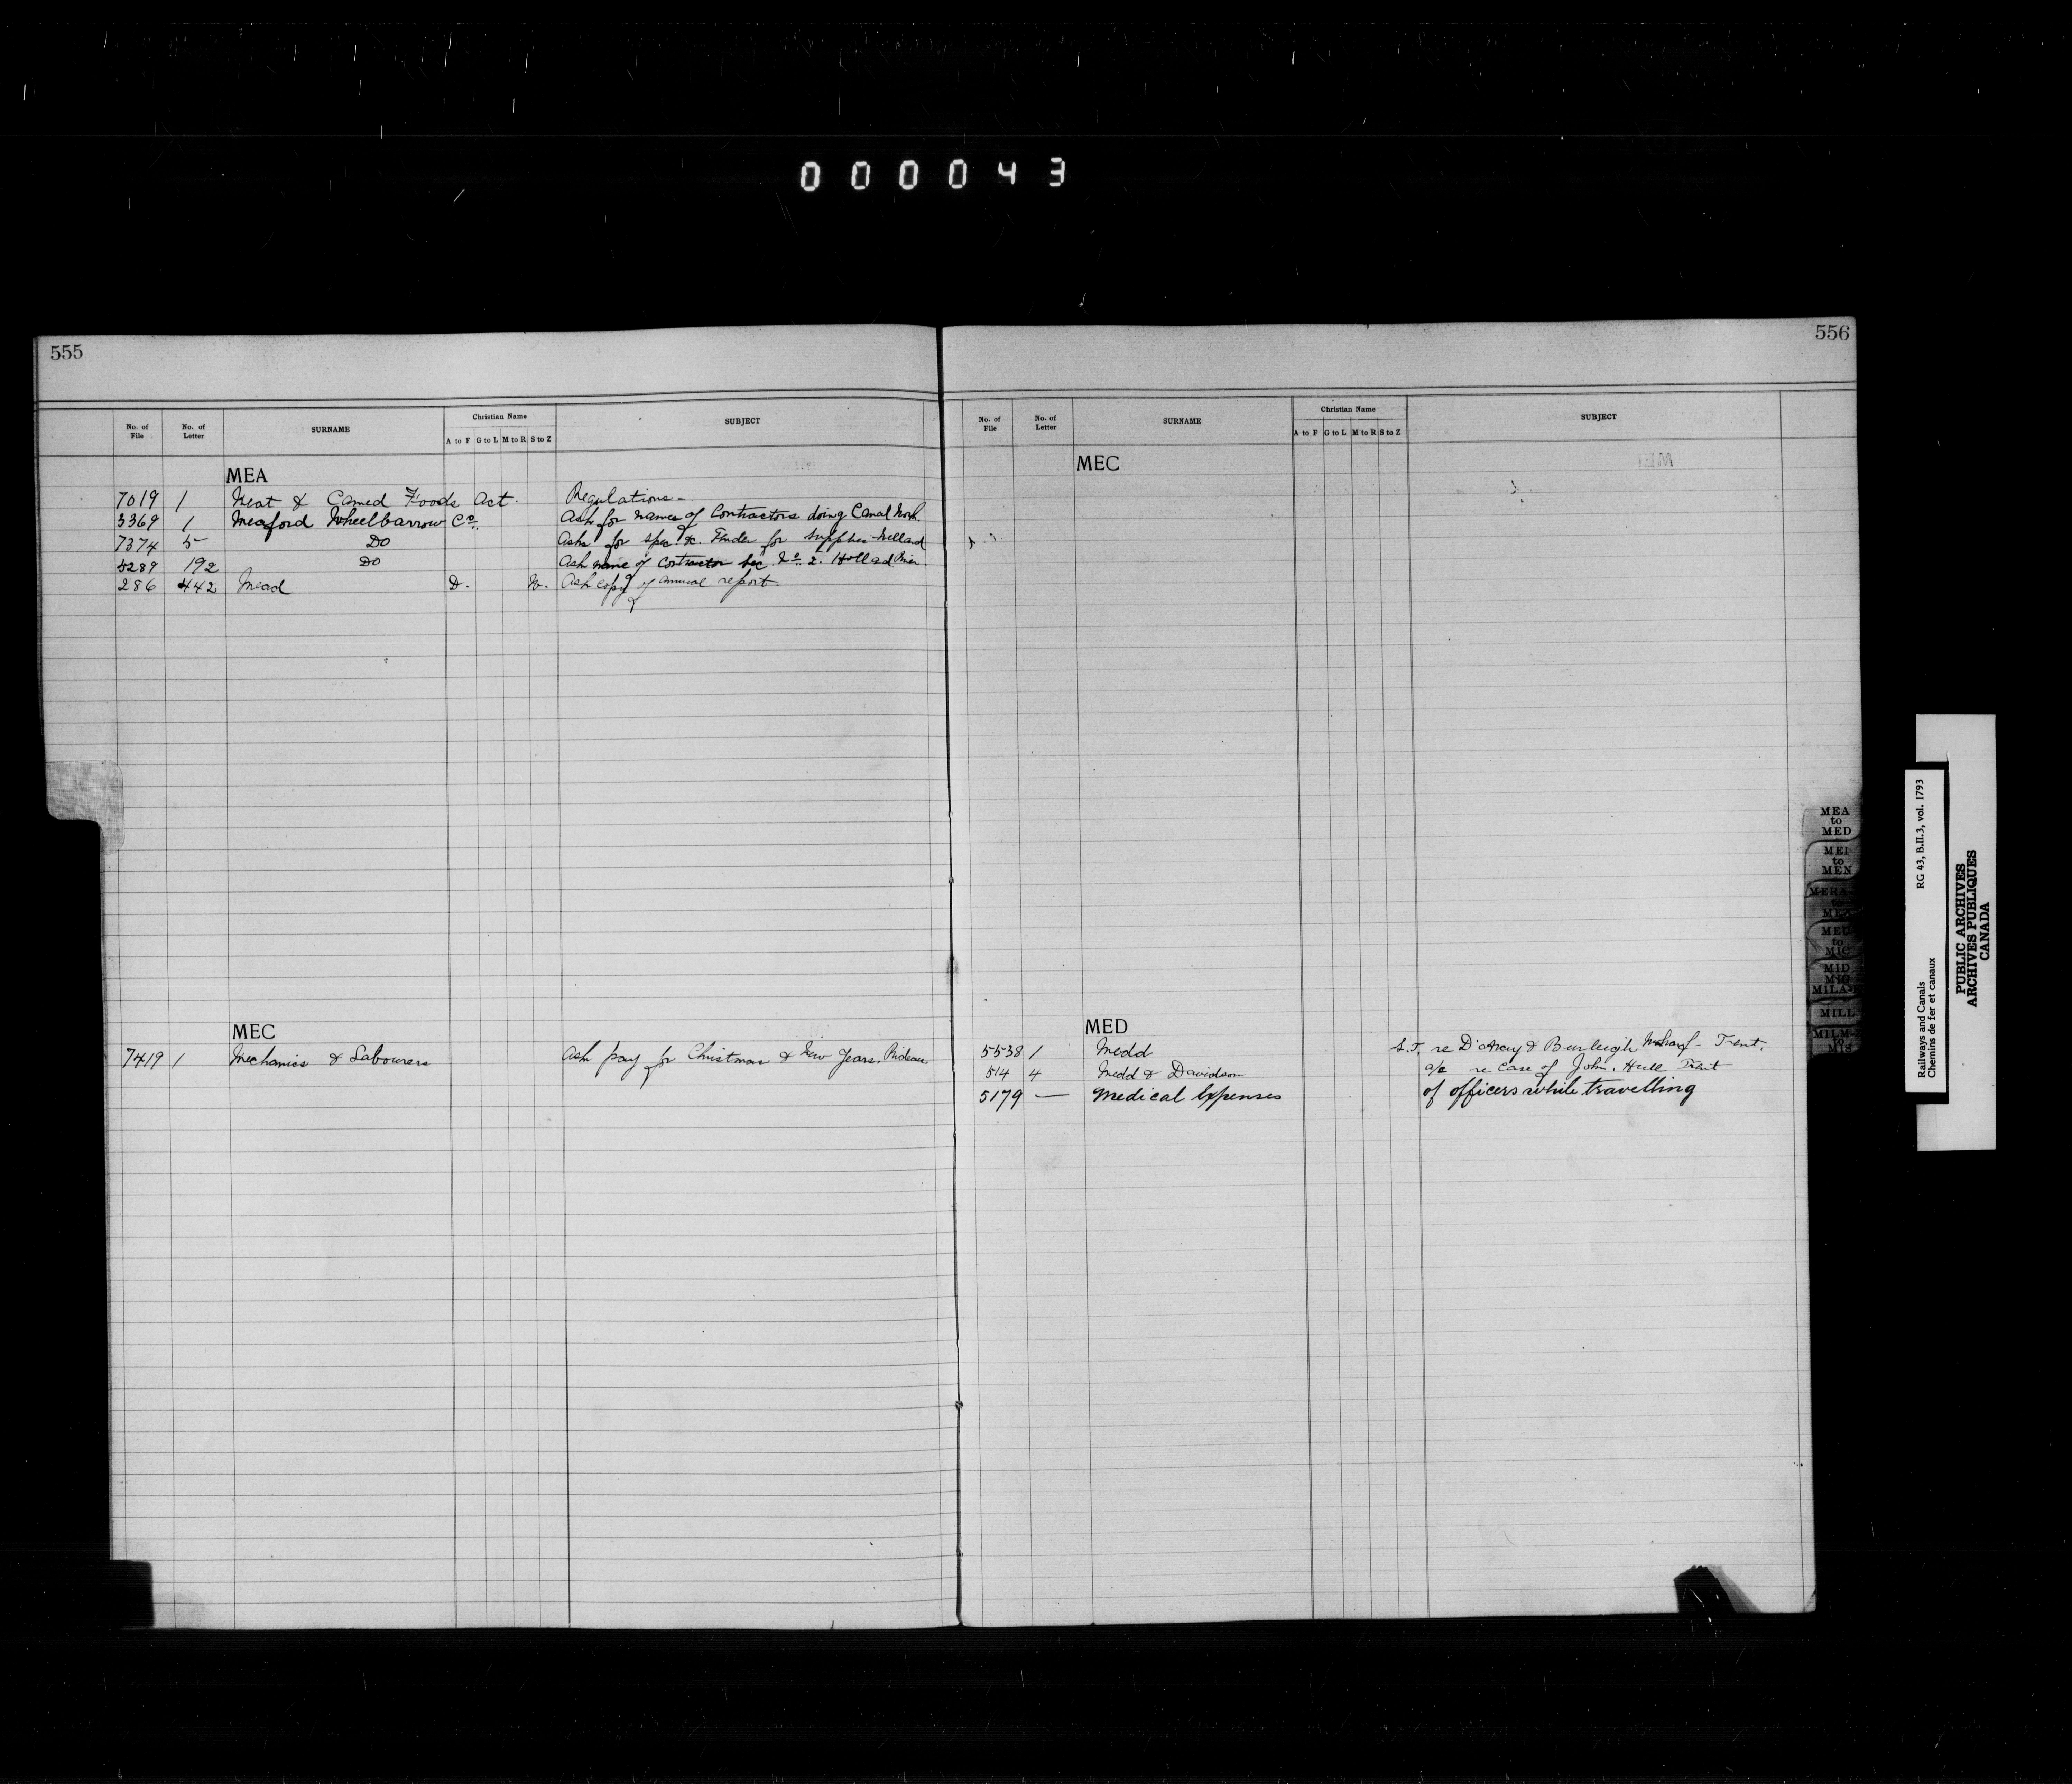 000043
555
No. of File No. of Letter SURNAME Christian Name SUBJECT
A to F G to L M to R S to Z
MEA
7019 1 Meat & Canned Foods Act. Regulations-
3369 1 Meaford Wheelbarrow Co. Ask for names of Contractors doing Canal Work.
7374 5 Do Asks for spec. &c. Tender for supplies Welland
5289 192 Do Ask name of Contractor Sec. No. 2.
286 442 Mead D. W. Ask copy of annual report
MEC
7419 1 Mechanics & Labourers Ask pay for Christmas & New Years. Rideau
556
No. of File No. of Letter SURNAME Christian Name SUBJECT
A to F G to L M to R S to Z
MEC
MED
5538 1 Medd S.T. re D'Arcy & Burleigh Wharf - Trent.
514 4 Medd & Davidson a/c re Case of John. Hull Trent
5179 — Medical Expenses of officers while travelling
MEA to MED
MEI to MEN
MERA-
to
MEU to MIC
MID
MIG
MILA-
MILL
MILM-
to
MIS
Railways and Canals RG 43, B.II.3, vol. 1793
Chemins de fer et canaux
PUBLIC ARCHIVES
ARCHIVES PUBLIQUES
CANADA